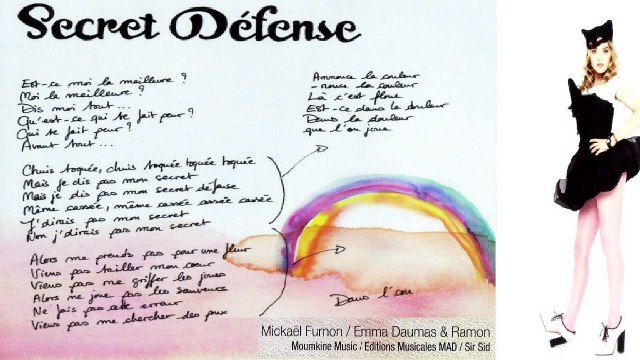 Secret Défense
Est-ce moi la meilleure ?
Moi la meilleure ?
Dis moi tout...
Qu'est-ce qui te fait peur ?
Qui te fait peur ?
Avant tout...
Chuis toquée, chuis toquée toquée toquée
Mais je dis pas mon secret
Mais je dis pas mon secret défense
Même cassée, même cassée cassée cassée
J'dirais pas mon secret
Non j'dirais pas mon secret
Alors me prends pas pour une fleur
Viens pas tailler mon cœur
Viens pas me griffer les joues
Alors me joue pas les sauveurs
Ne fais pas cette erreur
Viens pas me chercher des poux
Annonce la couleur
-nonce la couleur
Là c'est flou
Est-ce dans la douleur
Dans la douleur
que l'on joue
Dans l'eau
Mickaël Furnon / Emma Daumas & Ramon
Moumkine Music / Editions Musicales MAD / Sir Sid